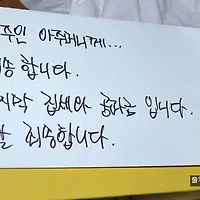 주인 아주머니께...
송합니다.
지막 집세와 공과금 입니다.
말 죄송합니다.